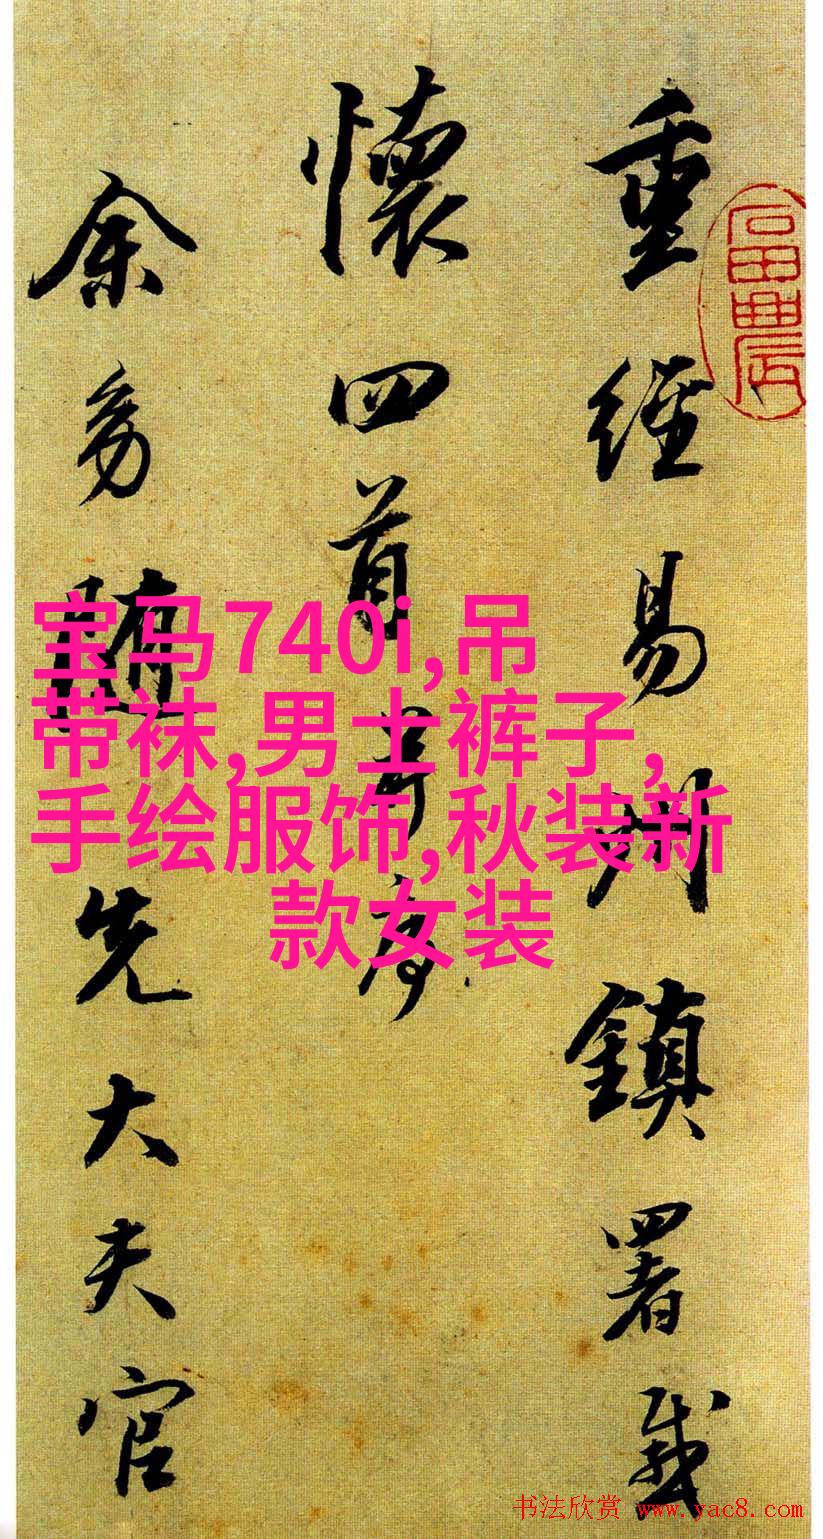 重经易州鎮署感
懷四首并序
余易随先大夫官
宝马740i,吊
带袜,男士裤子,
手绘服饰,秋装新
款女装
书法欣赏 www.yac8.com